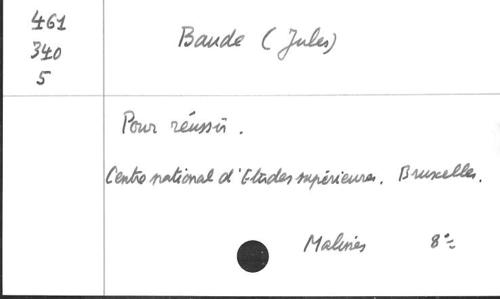 461
340
5
Baude (Jules)
Pour réussir.
Centre national d'Etudes supérieures. Bruxelles.
Malines 8°